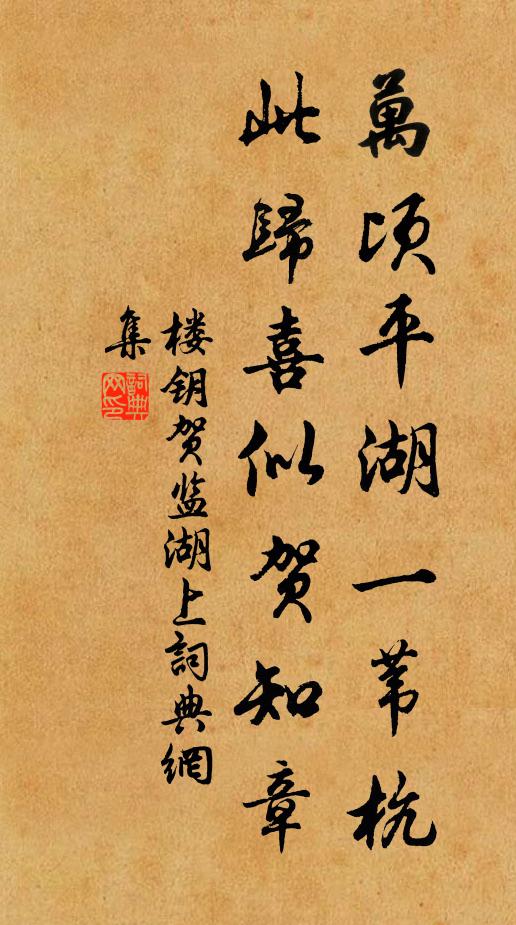 萬頃平湖一苇杭
此歸喜似贺知章
楼钥贺监湖上詞典網
集
詞典網印